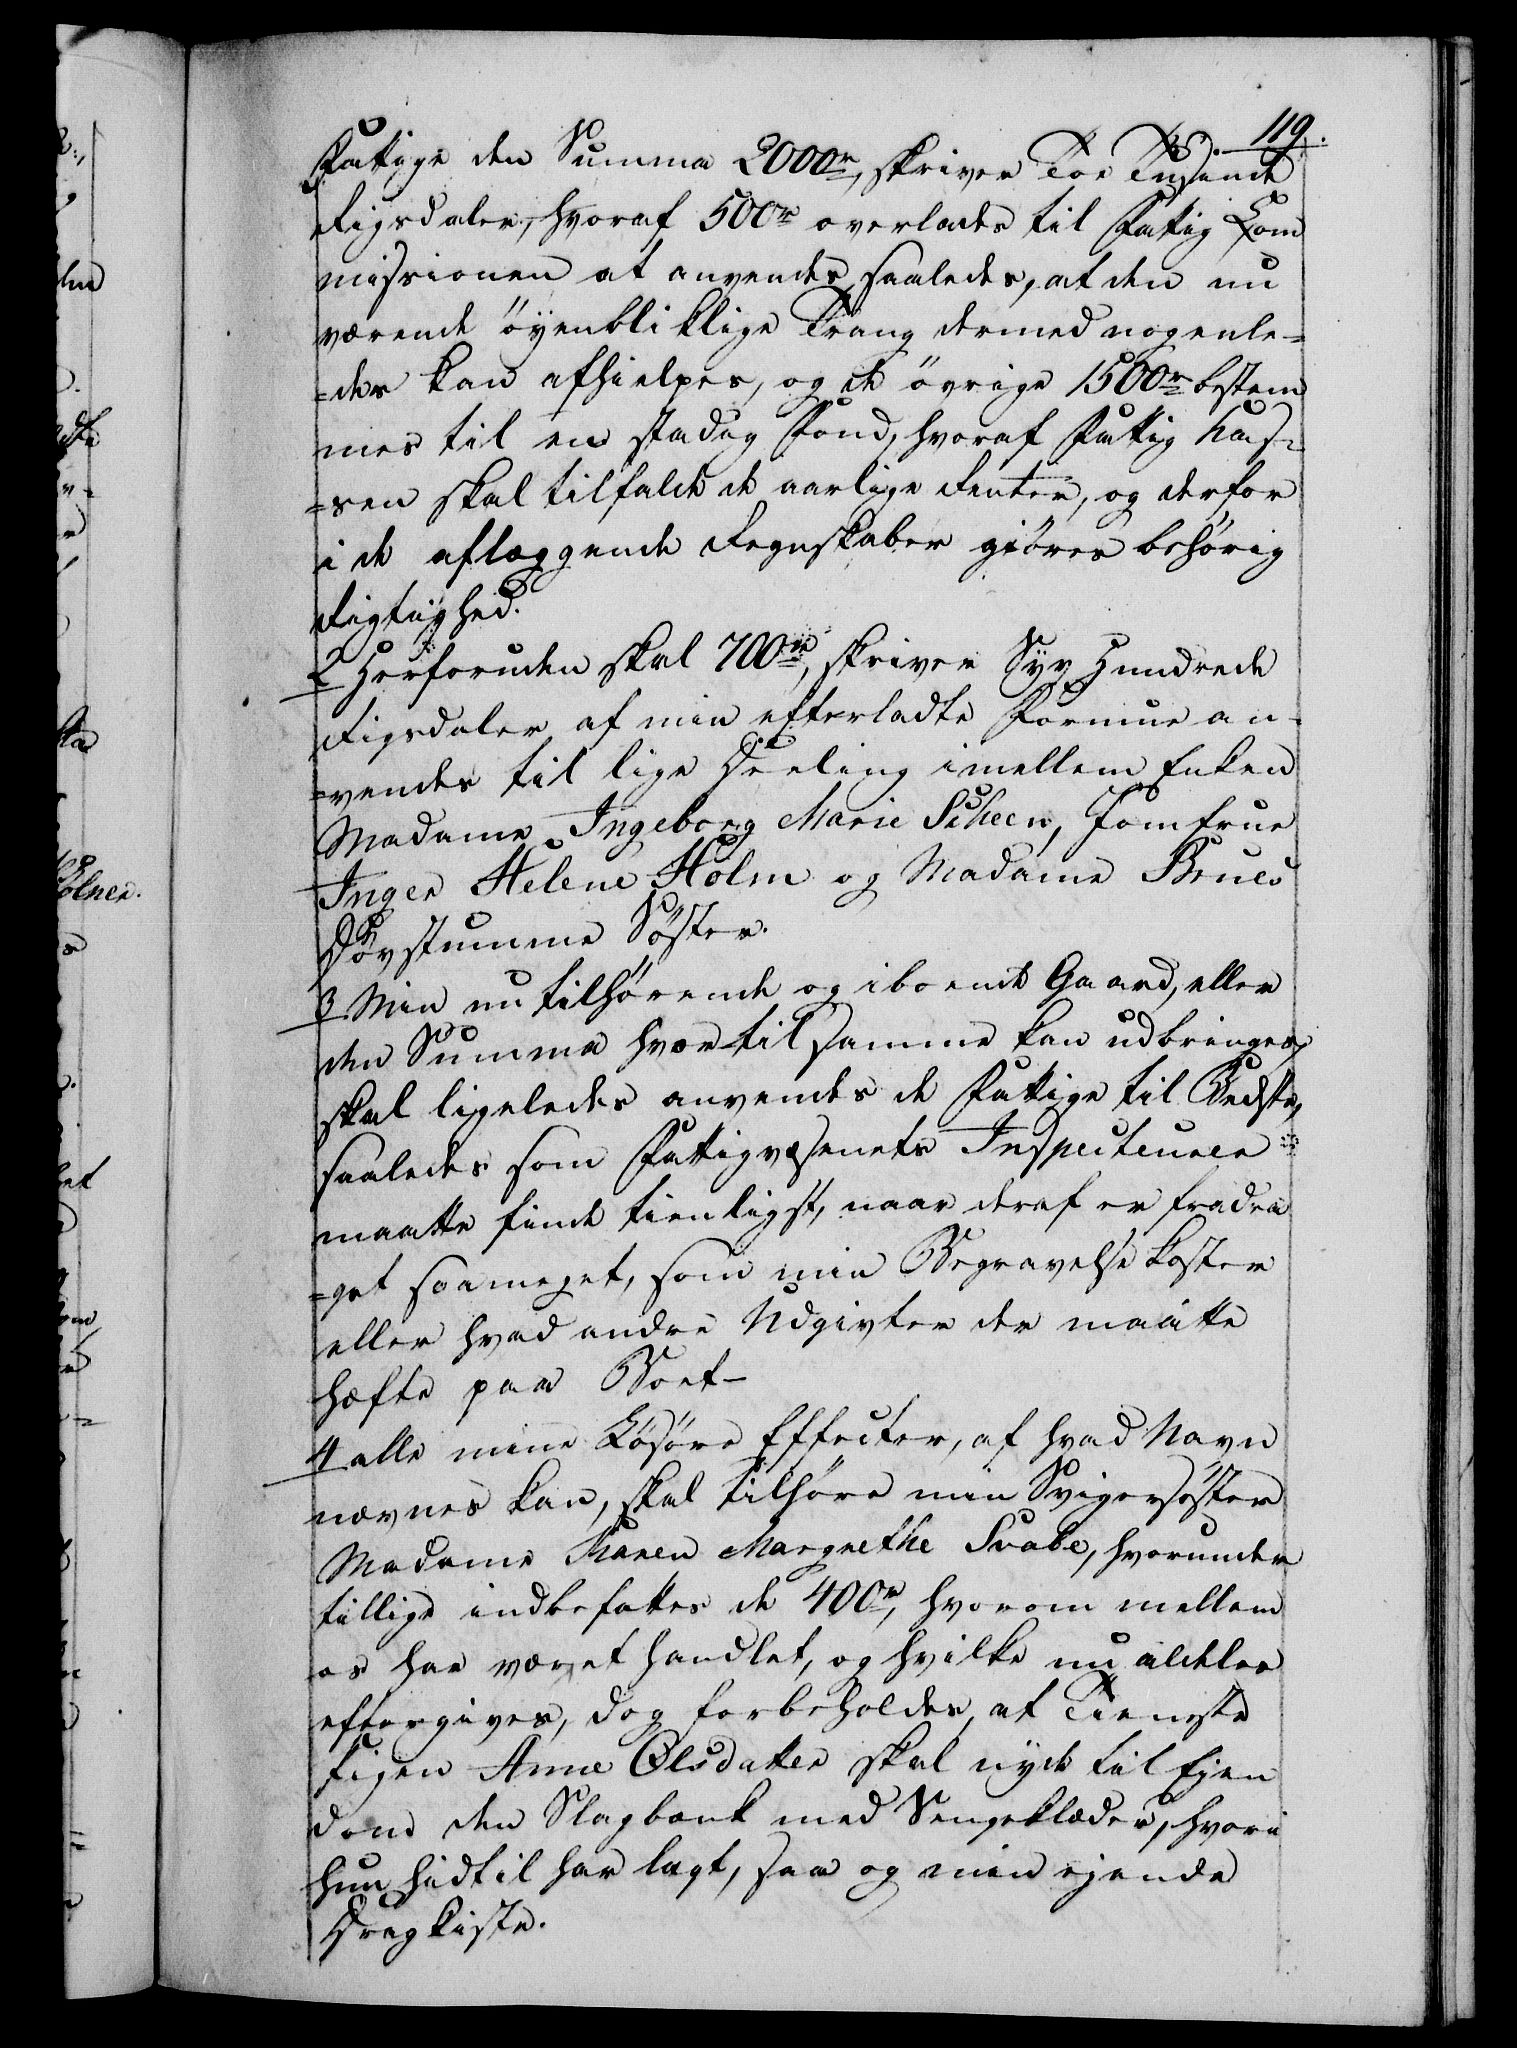 119.
Fattige den Summa 2000rd, skriver Toe Tusende
Rigsdaler, hvoraf 500rd overlades til Fattig Com
missionen at anvendes saaledes, at den nu
værende öyenbliklige Trang dermed nogenle=
=des kan afhielpes, og de övrige 1500rd bestem
mes til en stadig Fond, hvoraf Fattig Kas=
=sen skal tilfalde de aarlige Renter, og derfor
i de aflæggende Regnskaber giöres behörig
Rigtighed.
2 Herforuden skal 700rd, skriver Syv Hundrede
Rigsdaler af min efterladte Formue an=
=vendes til lige Deeling imellem Enken
Madame Ingeborg Marie Scheen, Jomfrue
Inger Helene Holm og Madame Brues
Dövstumme Söster.
3 Min nu tilhörende og iboende Gaard, eller
den Summa hvortil samme kan udbringes,
skal ligeledes anvendes de Fattige til Bedste,
saaledes som Fattigvæsenets Inspecteurer
maatte finde tienligst, naar deraf er fradra
=get saameget, som min Begravelse koster
eller hvad andre Udgivter der maatte
hæfte paa Boet-
4 alle mine Lösöre Effecter, af hvad Navn
nævnes kan, skal tilhöre min Svigersöster
Madame Maren Margrethe Svabe, hvorunder
tillige indbefattes de 400rd, hvorom mellem
os har været handlet, og hvilke nu aldeles
eftergives, dog forbeholdes, at Tieneste
Pigen Anne Olsdatter skal nyde til Ejen
dom den Slagbænk med Sengeklæder, hvori
hun hidtil har lagt, saa og min ejende
Dragkiste.